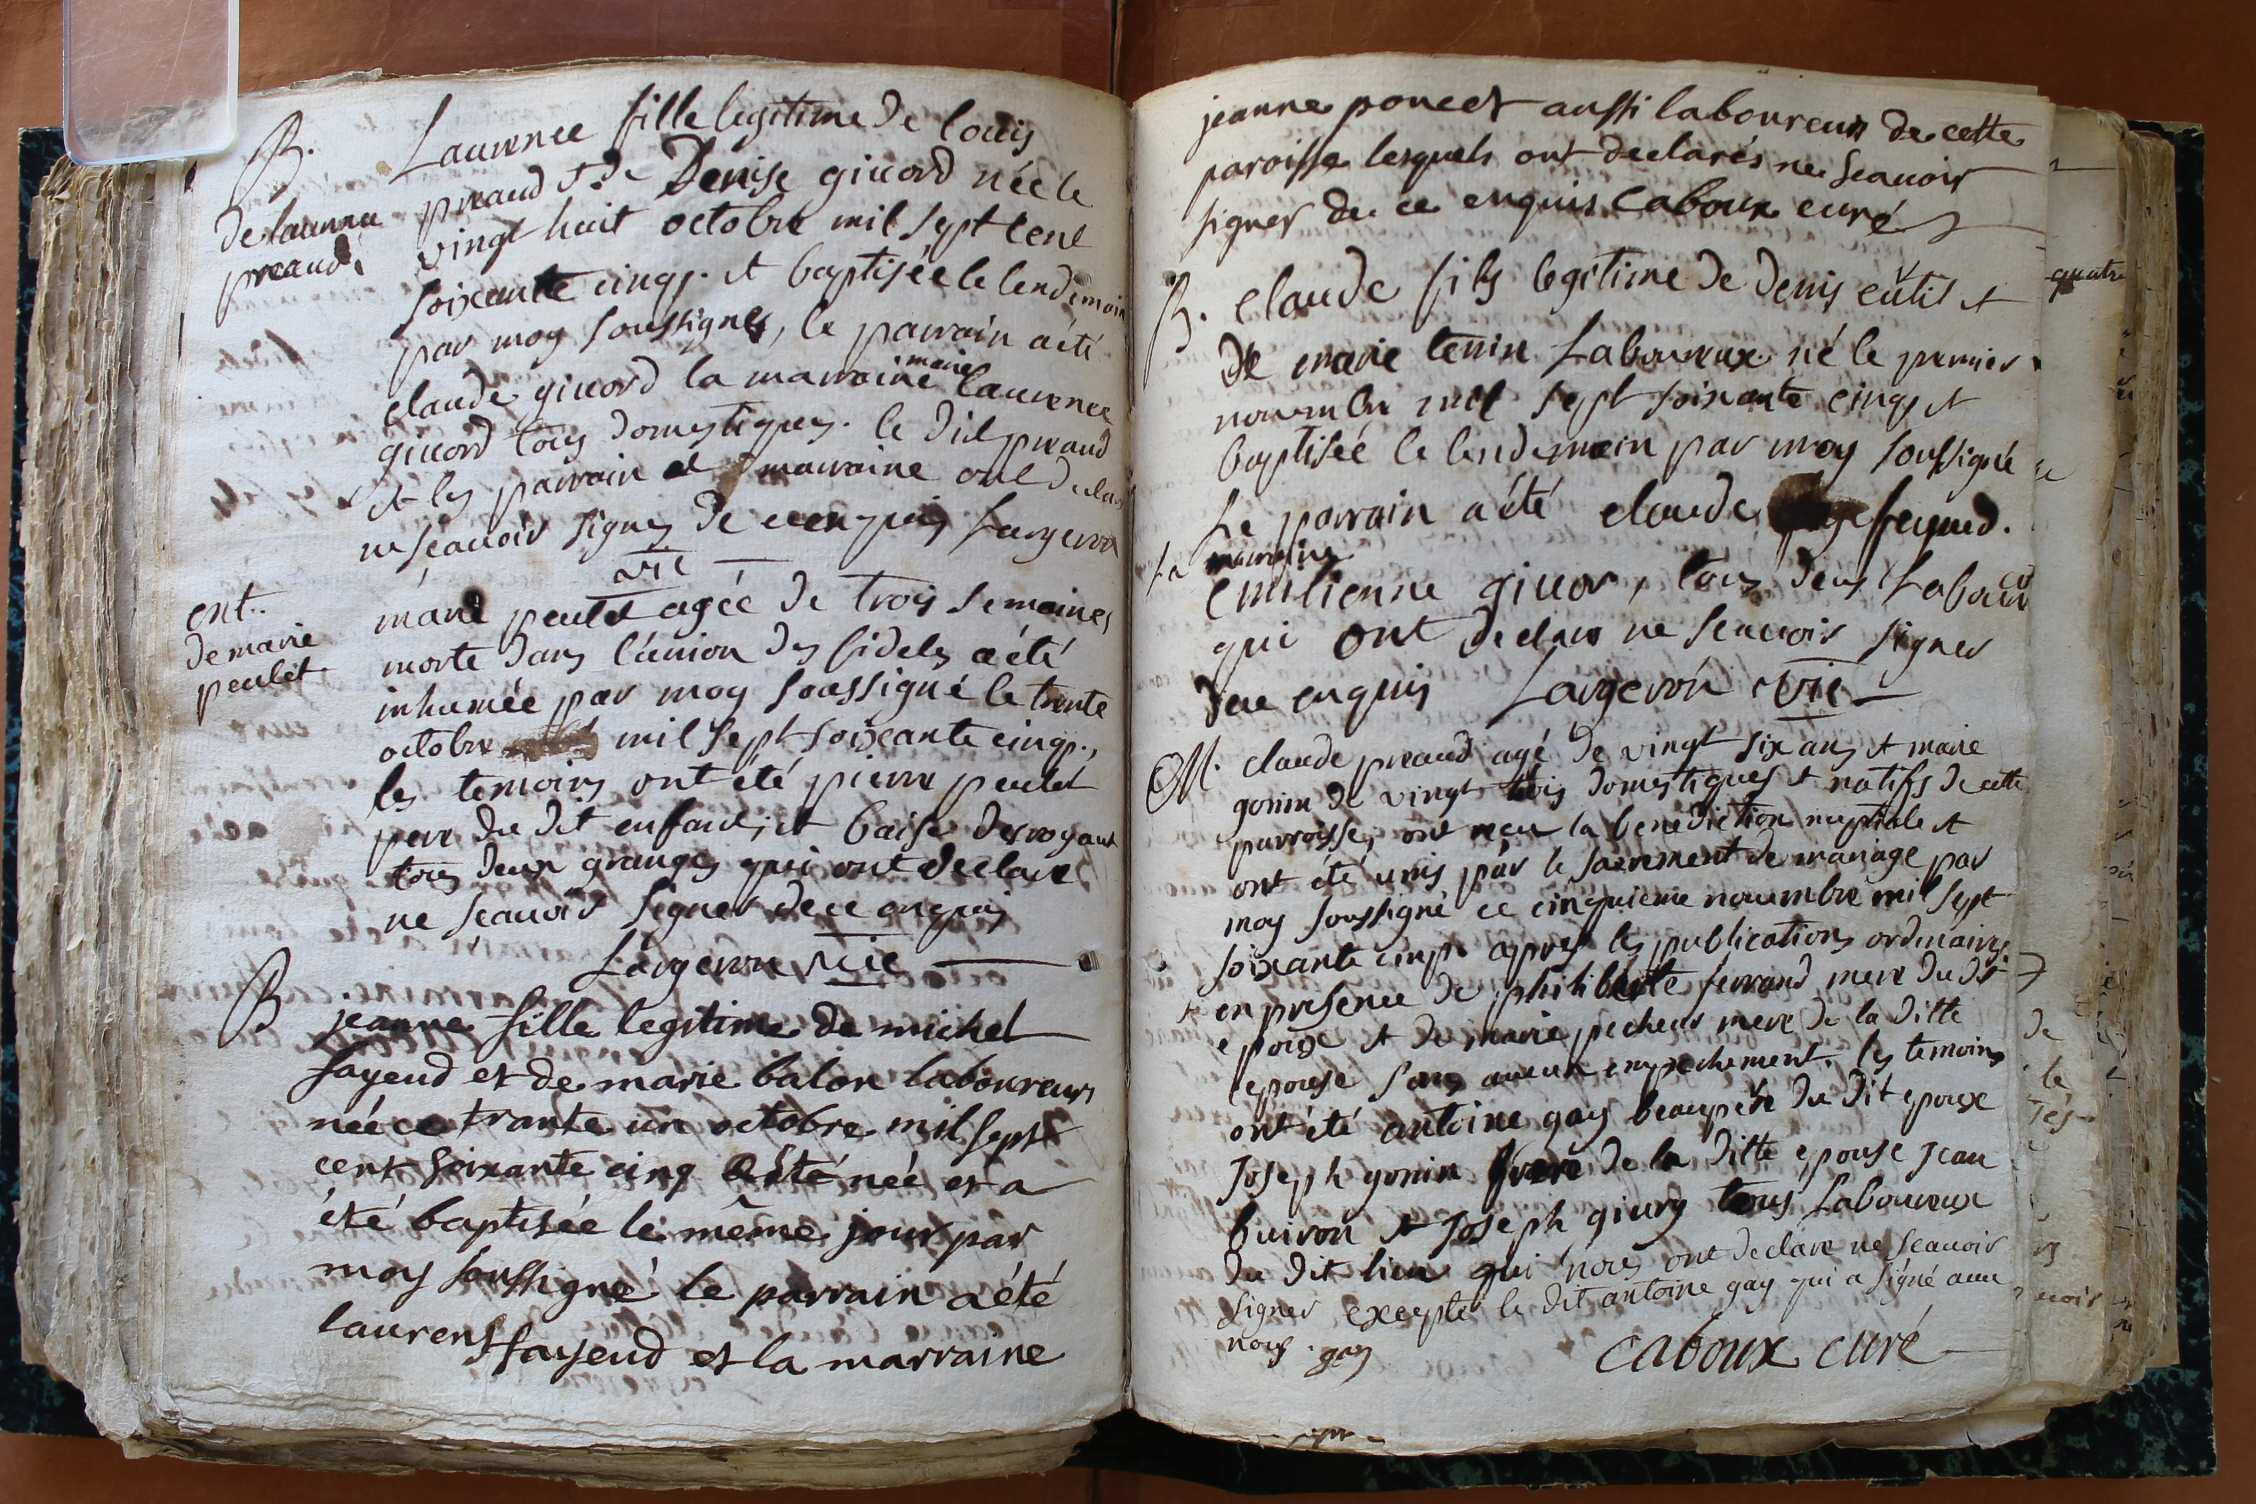 B.
de laurence
preaud
Laurence fille legitime de louis
preaud et de Denise giuord née le
vingt huit octobre mil sept cent
soixante cinq. et baptisée le lendemain
par moy soussigné, le parrain a été
claude giuord la marraine marie laurence
giuord tous domestiques. le dit preaud
et les parrain et marraine ont declaré
ne sçauoir signer de ce enquis Largeron
vic
ent.
de marie
peulet
marie peulet agée de trois semaines
morte dans l'union des fideles a été
inhumée par moy soussigné le trente
octobre mil sept soixante cinq.,
les temoins ont été pierre peulet
pere du dit enfant, et blaise desroyaux
tous deux grangés qui ont declaré
ne sçauoir signer de ce enquis
Largeron vic
B. jeanne fille legitime de michel
fayend et de marie balon laboureurs
née ce trante un octobre mil sept
cent soixante cinq a été née et a
été baptisée le même jour par
moy soussigné le parrain a été
laurens fayend et la marraine
jeanne poncet aussi laboureurs de cette
paroisse lesquels ont declarés ne sçauoir
signer de ce enquis Caboux curé
B. claude fils legitime de denis
de marie Laboureux né le premier
nouembre mil sept soixante cinq et
baptisée le lendemain par moy soussigné
Le parrain a été claude fayend.
La marraine
emilienne giuor, tous deux Labour
qui ont declaré ne sçauoir signer
de ce enquis Largeron vic
M. claude preaud agé de vingt six ans et marie
gonin de vingt trois domestiques et natifs de cette
parroisse, ont reçu la benediction nuptiale et
ont été unis par le sacrement de mariage par
moy soussigné ce cinquieme nouembre mil sept
soixante cinq. apres les publications ordinaires
en presence de philiberte ferrand mere du dit
epoux et de marie pecheur mere de la ditte
epouse sans aucun empechement. les temoins
ont été antoine gay beaupere du dit epoux
Joseph gonin frere de la ditte epouse jean
buiron et joseph giury tous Laboureux
du dit lieu qui nous ont declaré ne sçauoir
signer excepté le dit antoine gay qui a signé auec
nous. gay
caboux curé
quatre
de
le